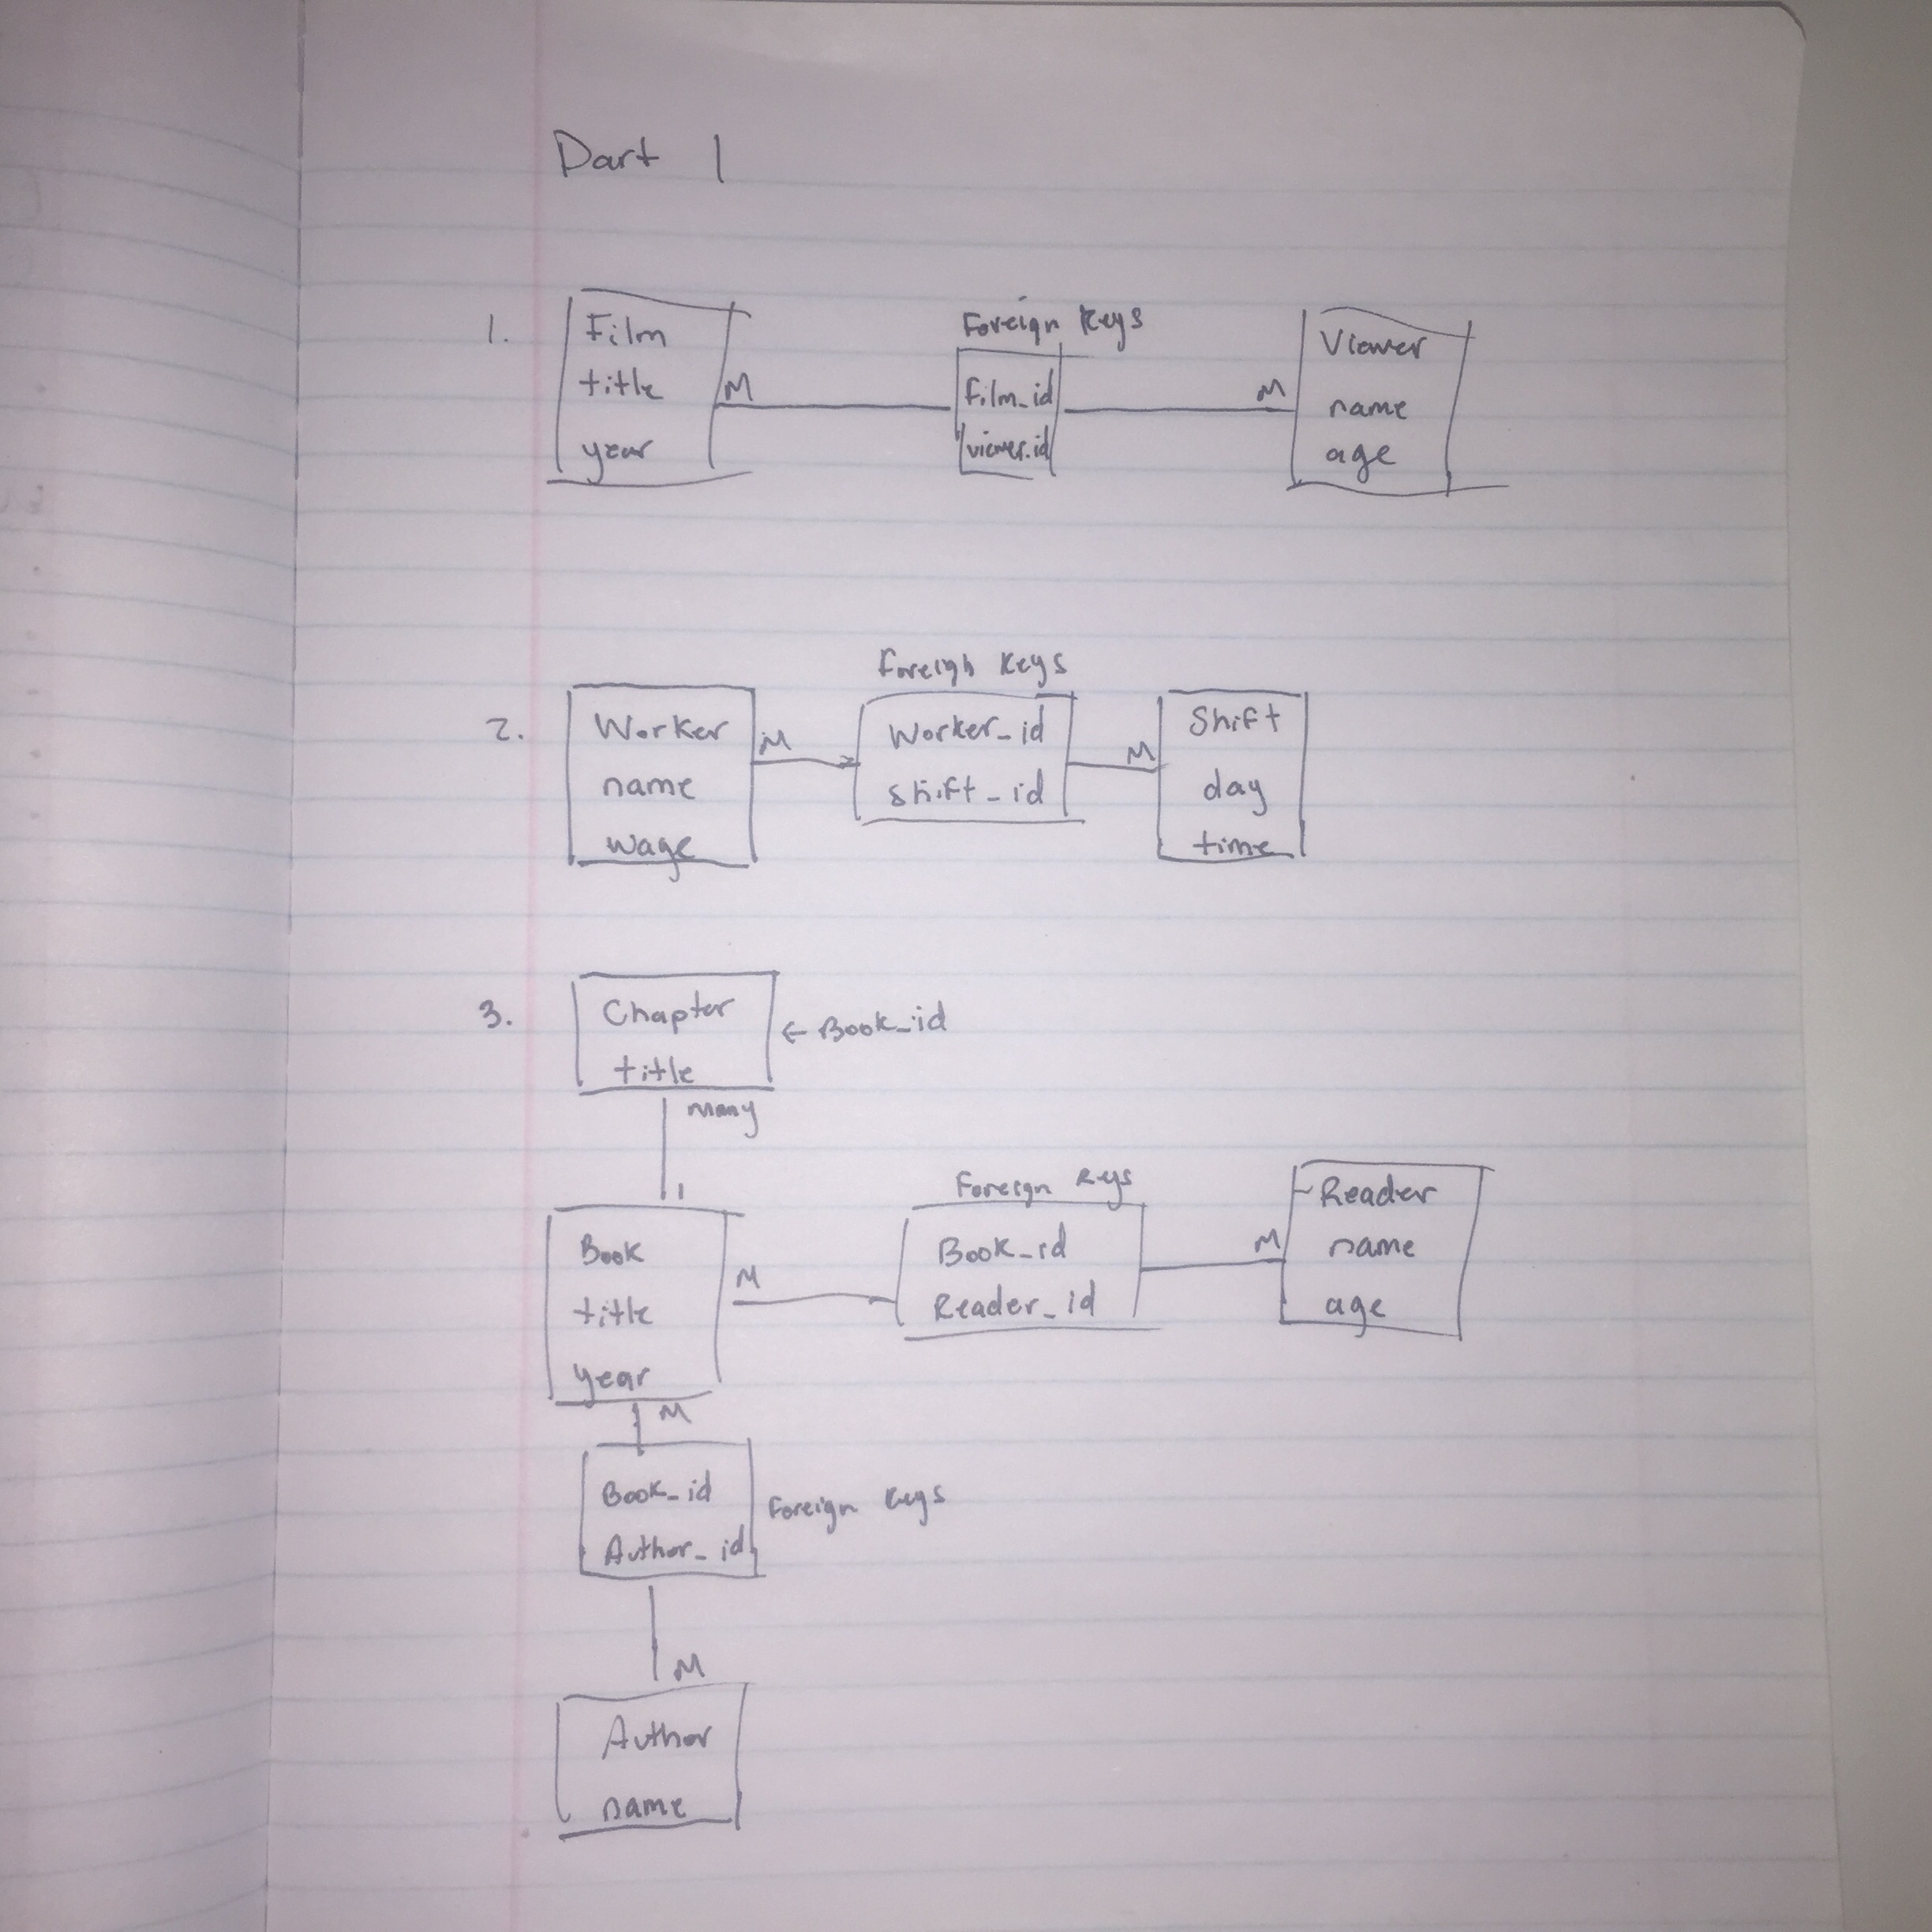 Part 1
1.
Film
title
year
M
Foreign Keys
film_id
viewer_id
M
Viewer
name
age
2.
Worker
name
wage
M
Foreign Keys
Worker_id
Shift_id
M
Shift
day
time
3.
Chapter
title
← Book_id
many
1
Book
title
year
M
Foreign Keys
Book_id
Reader_id
M
Reader
name
age
M
Book_id
Author_id
Foreign Keys
M
Author
name